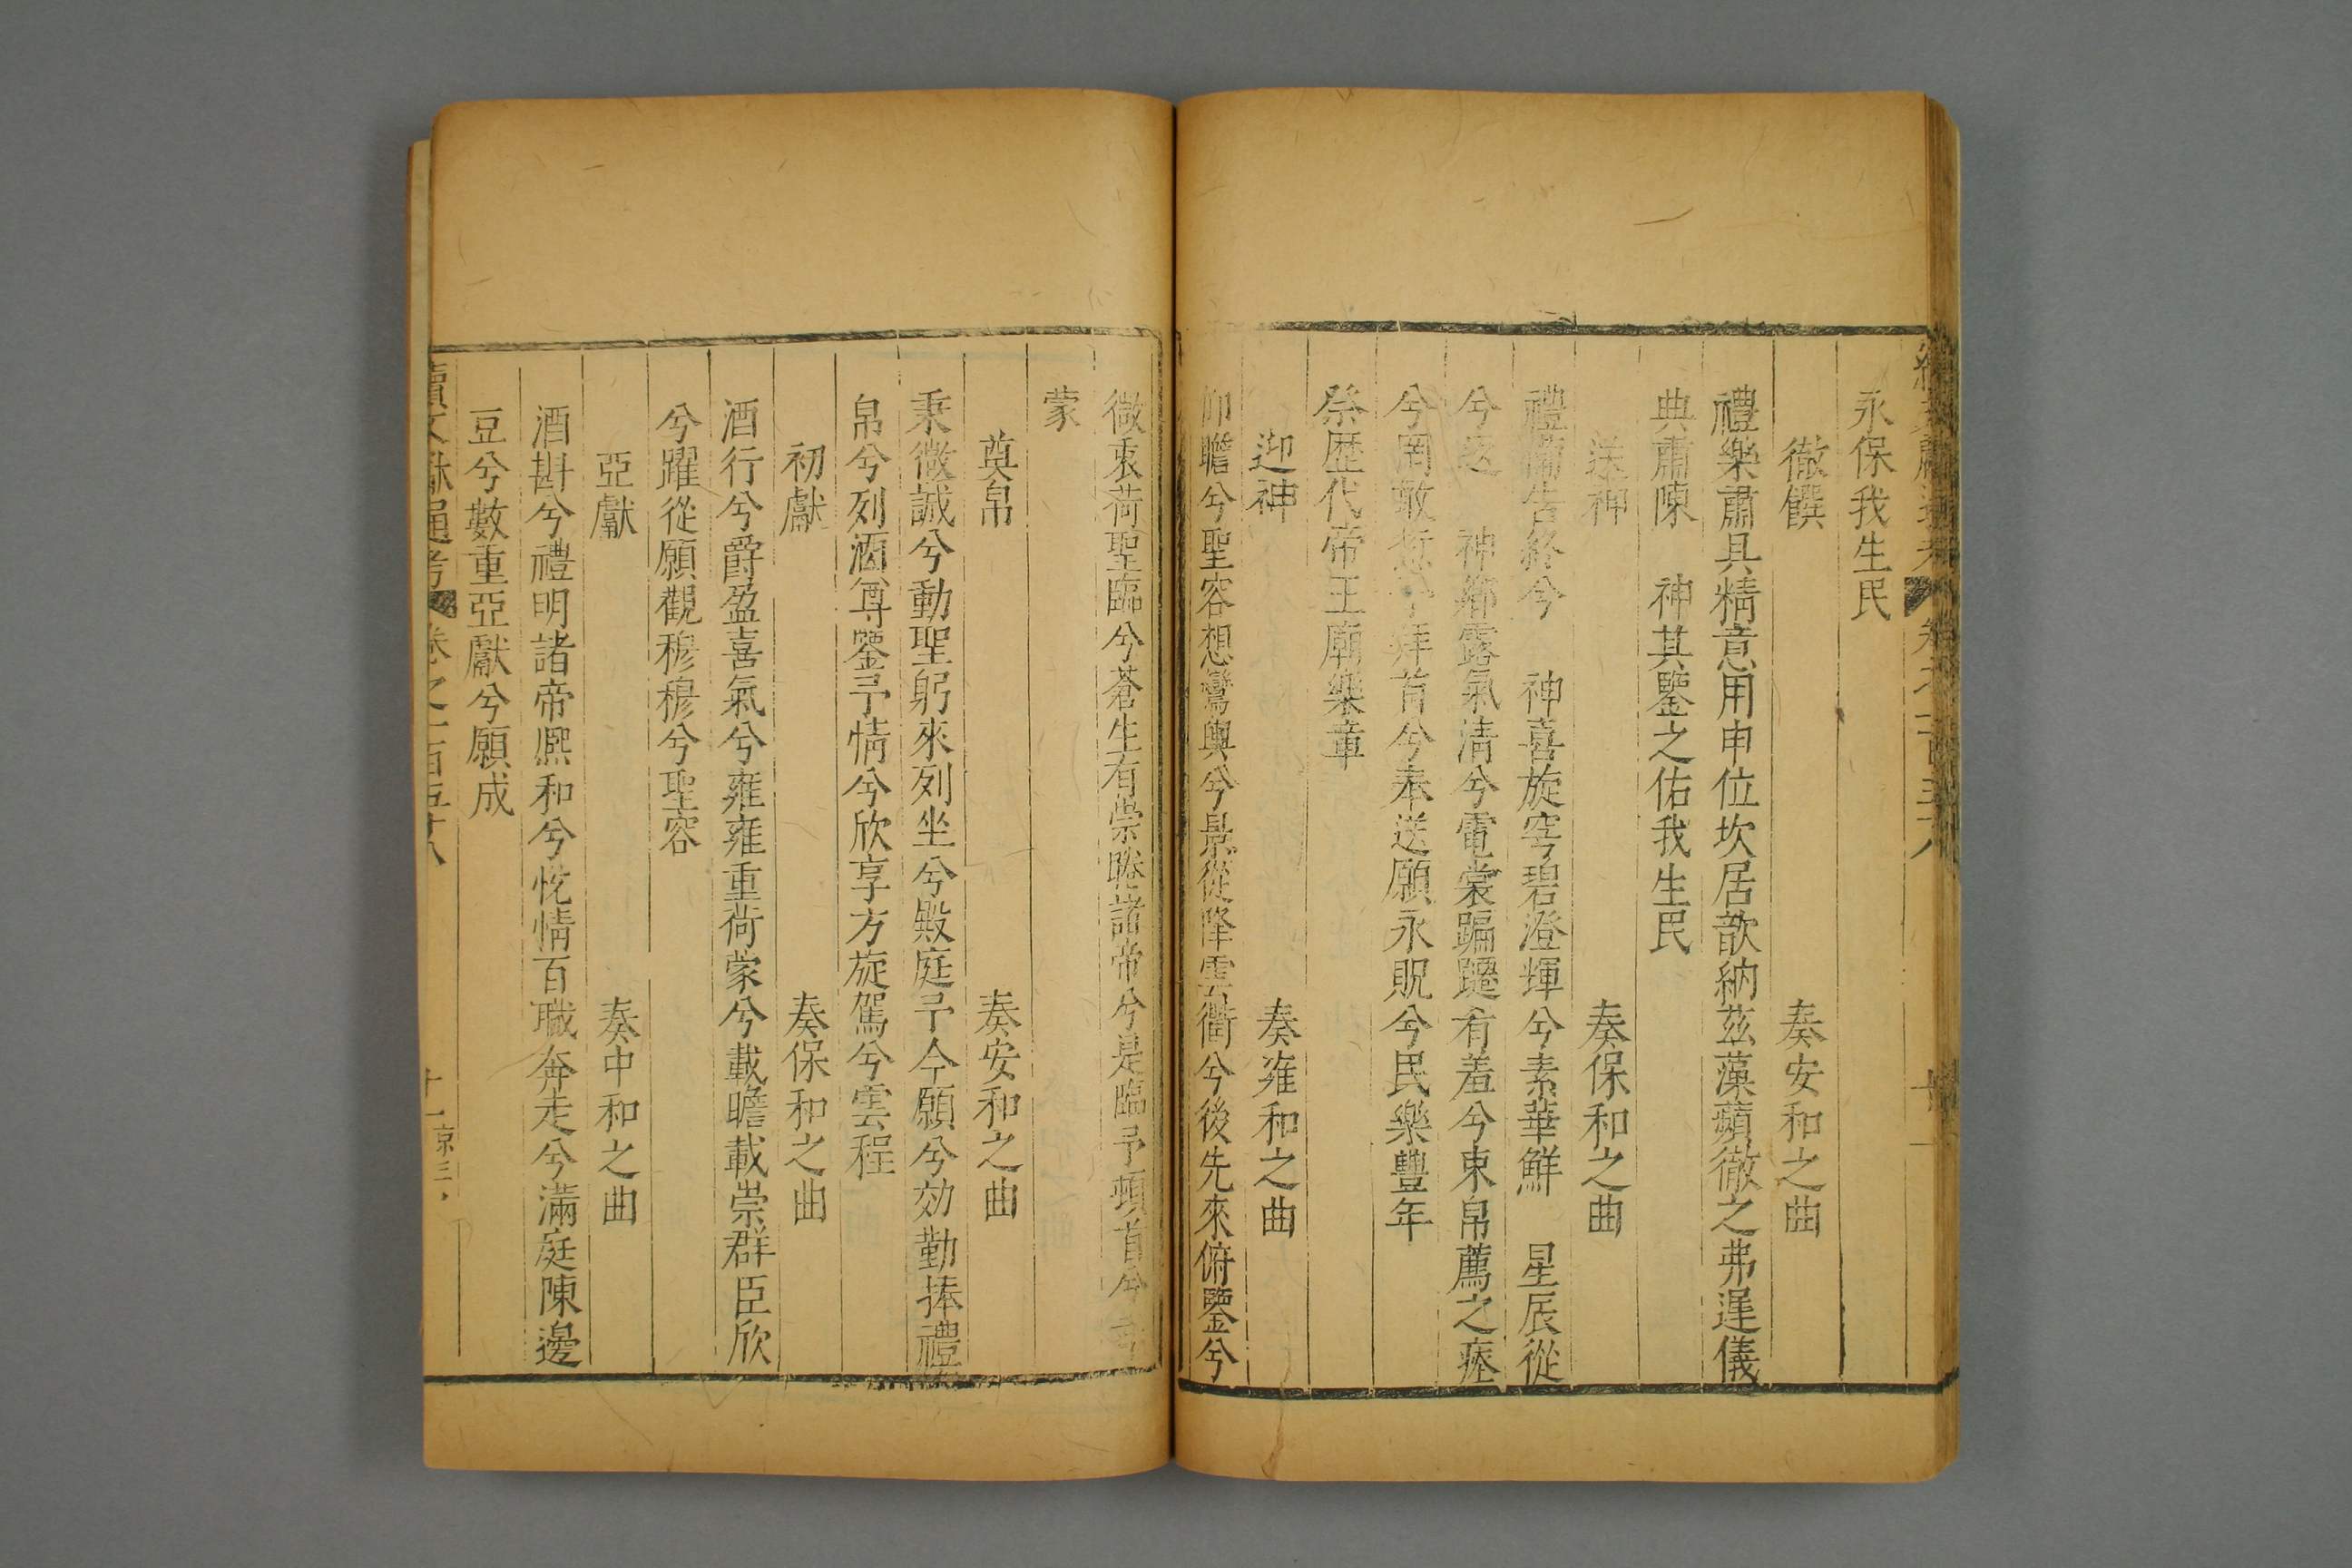 永保我生民
徹饌　奏安和之曲
禮樂肅具精意用申位坎居歆納茲藻蘋徹之弗遲儀
典肅陳　神其鑒之佑我生民
送神　奏保和之曲
禮備告終兮　神喜旋穹碧澄輝兮素華鮮　星辰從
兮返　神鄉露氣清兮霓裳蹁躚有羞兮束帛薦之瘞
兮罔敢愆　拜首兮奉送願永貺兮民樂豐年
祭歷代帝王廟樂章
迎神　奏雍和之曲
仰瞻兮聖容想鸞輿兮景從降雲衢兮後先來俯鑒兮
微衷荷聖臨兮蒼生有崇眷諸帝兮是臨予頓首兮
蒙
奠帛　奏安和之曲
秉微誠兮動聖躬來列坐兮殿庭予今願兮効勤捧禮
帛兮列酒尊鑒予情兮欣享方旋駕兮雲程
初獻　奏保和之曲
酒行兮爵盈喜氣兮雍雍重荷蒙兮載瞻載崇群臣欣
兮躍從願觀穆穆兮聖容
亞獻　奏中和之曲
酒斟兮禮明諸帝熙和兮悅情百職奔走兮滿庭陳邊
豆兮數重亞獻兮願成
續文獻通考　卷之一百五十八　京三